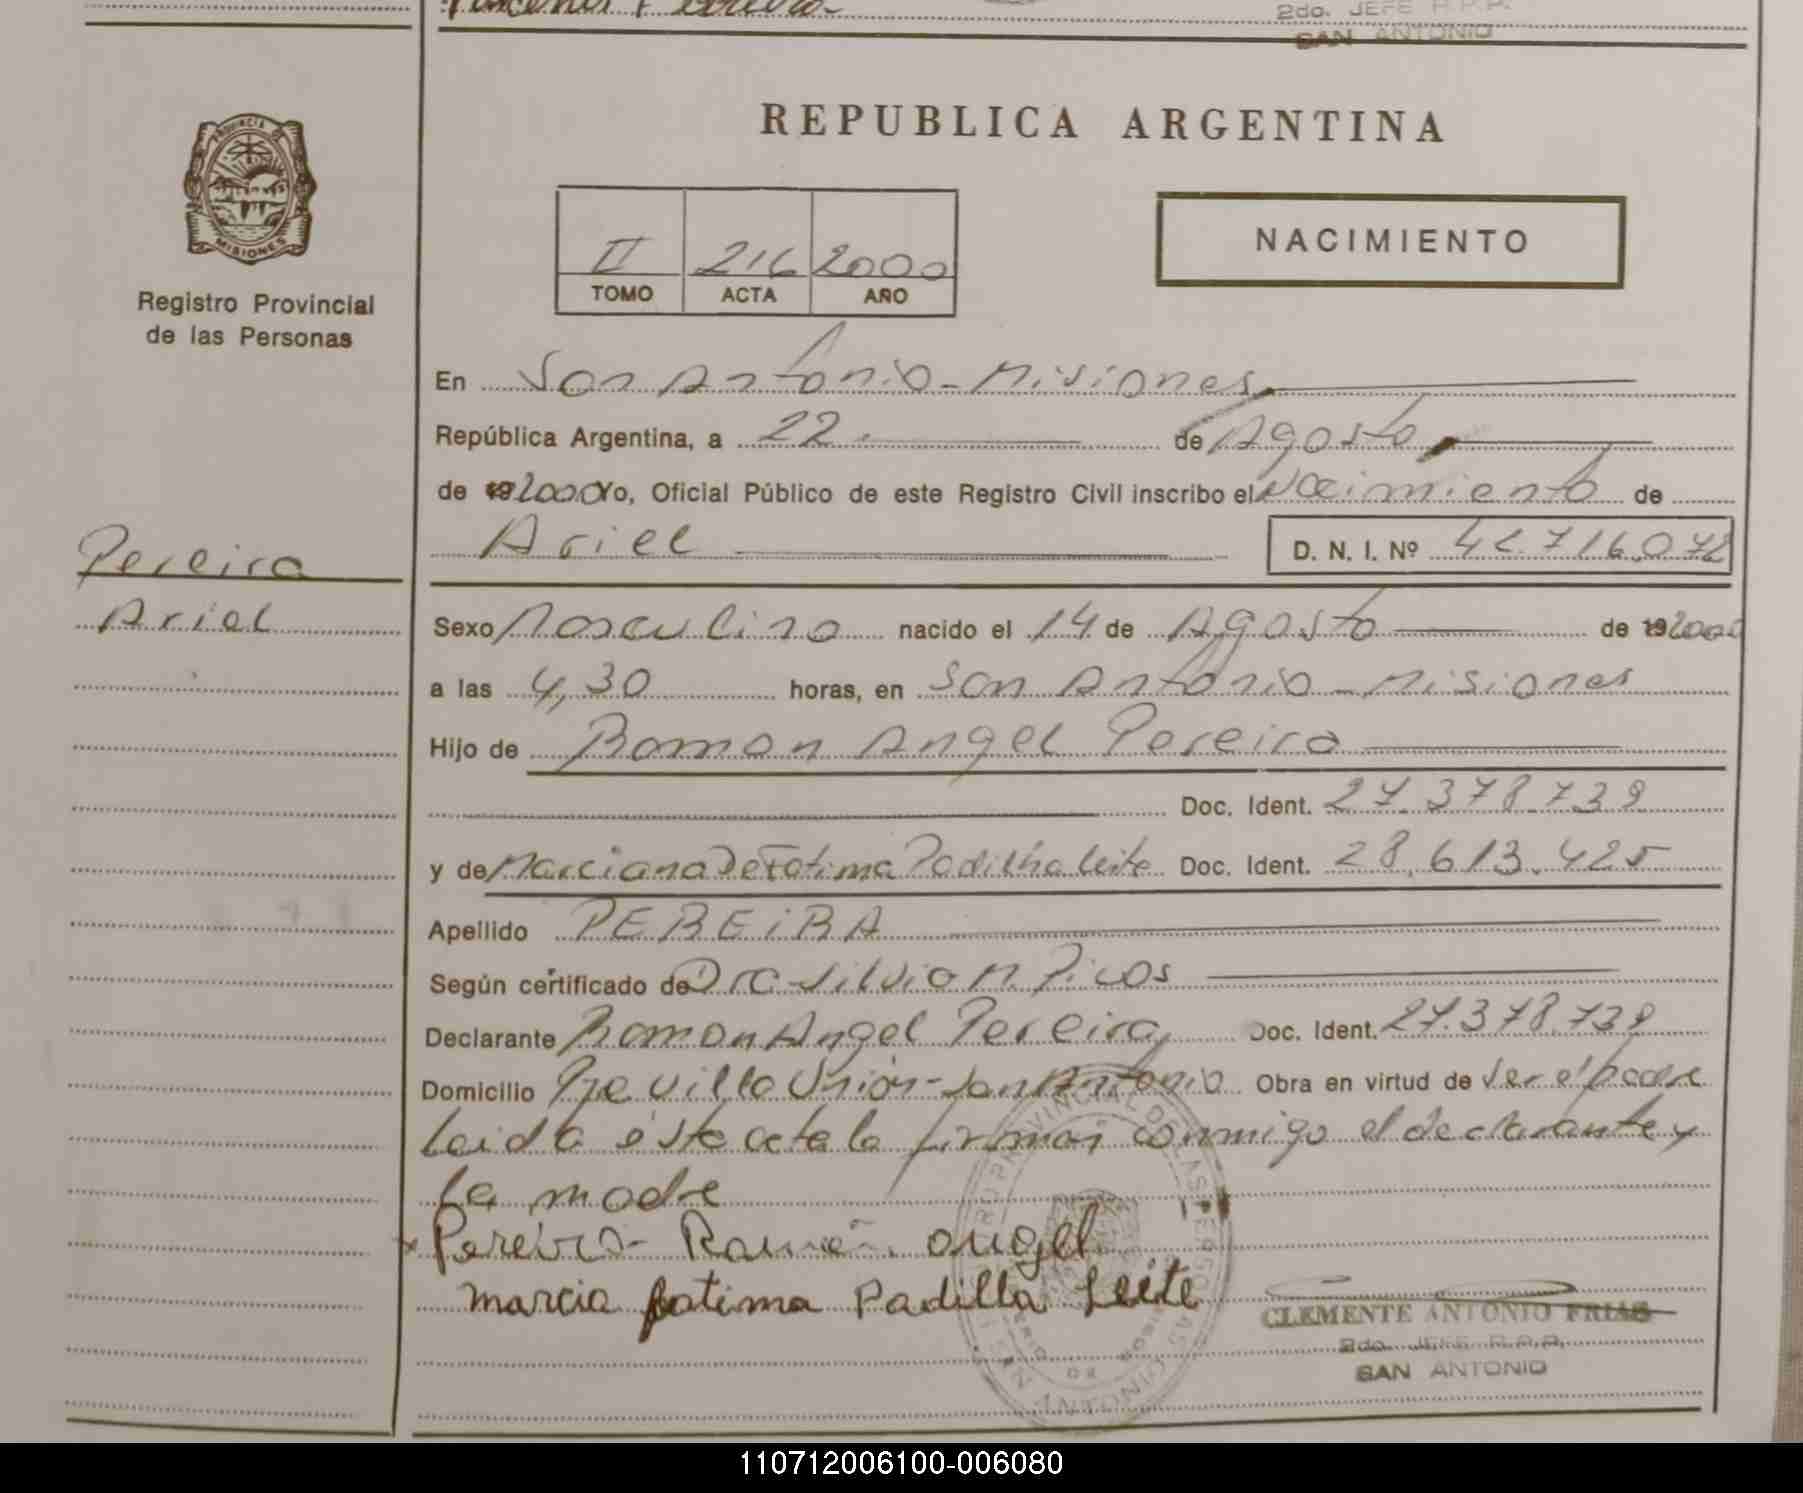 2do. JEFE R.P.P.
SAN ANTONIO
PROVINCIA DE
MISIONES
Registro Provincial
de las Personas
Pereira
Ariel
REPUBLICA ARGENTINA
II 216 2000
TOMO ACTA AÑO
NACIMIENTO
En San Antonio - Misiones
República Argentina, a 22 de Agosto
de 192000 Yo, Oficial Público de este Registro Civil inscribo el Nacimiento de
Ariel D. N. I. Nº 42.716.072
Sexo Masculino nacido el 14 de Agosto de 192000
a las 4,30 horas, en San Antonio - Misiones
Hijo de Ramon Angel Pereira
Doc. Ident. 27.378.739
y de Marciana De Fatima Padilha Leite Doc. Ident. 28.613.425
Apellido PEREIRA
Según certificado de Dra Silvia N. Picos
Declarante Ramon Angel Pereira Doc. Ident. 27.378.739
Domicilio Pje Villa Unión - San Antonio Obra en virtud de ser el padre
Leida éste acta la firman conmigo el declarante y
la madre
x Pereira Ramón angel
marcia fatima Padilla Leite
CLEMENTE ANTONIO FRIAS
2do. JEFE R.P.P.
SAN ANTONIO
110712006100-006080